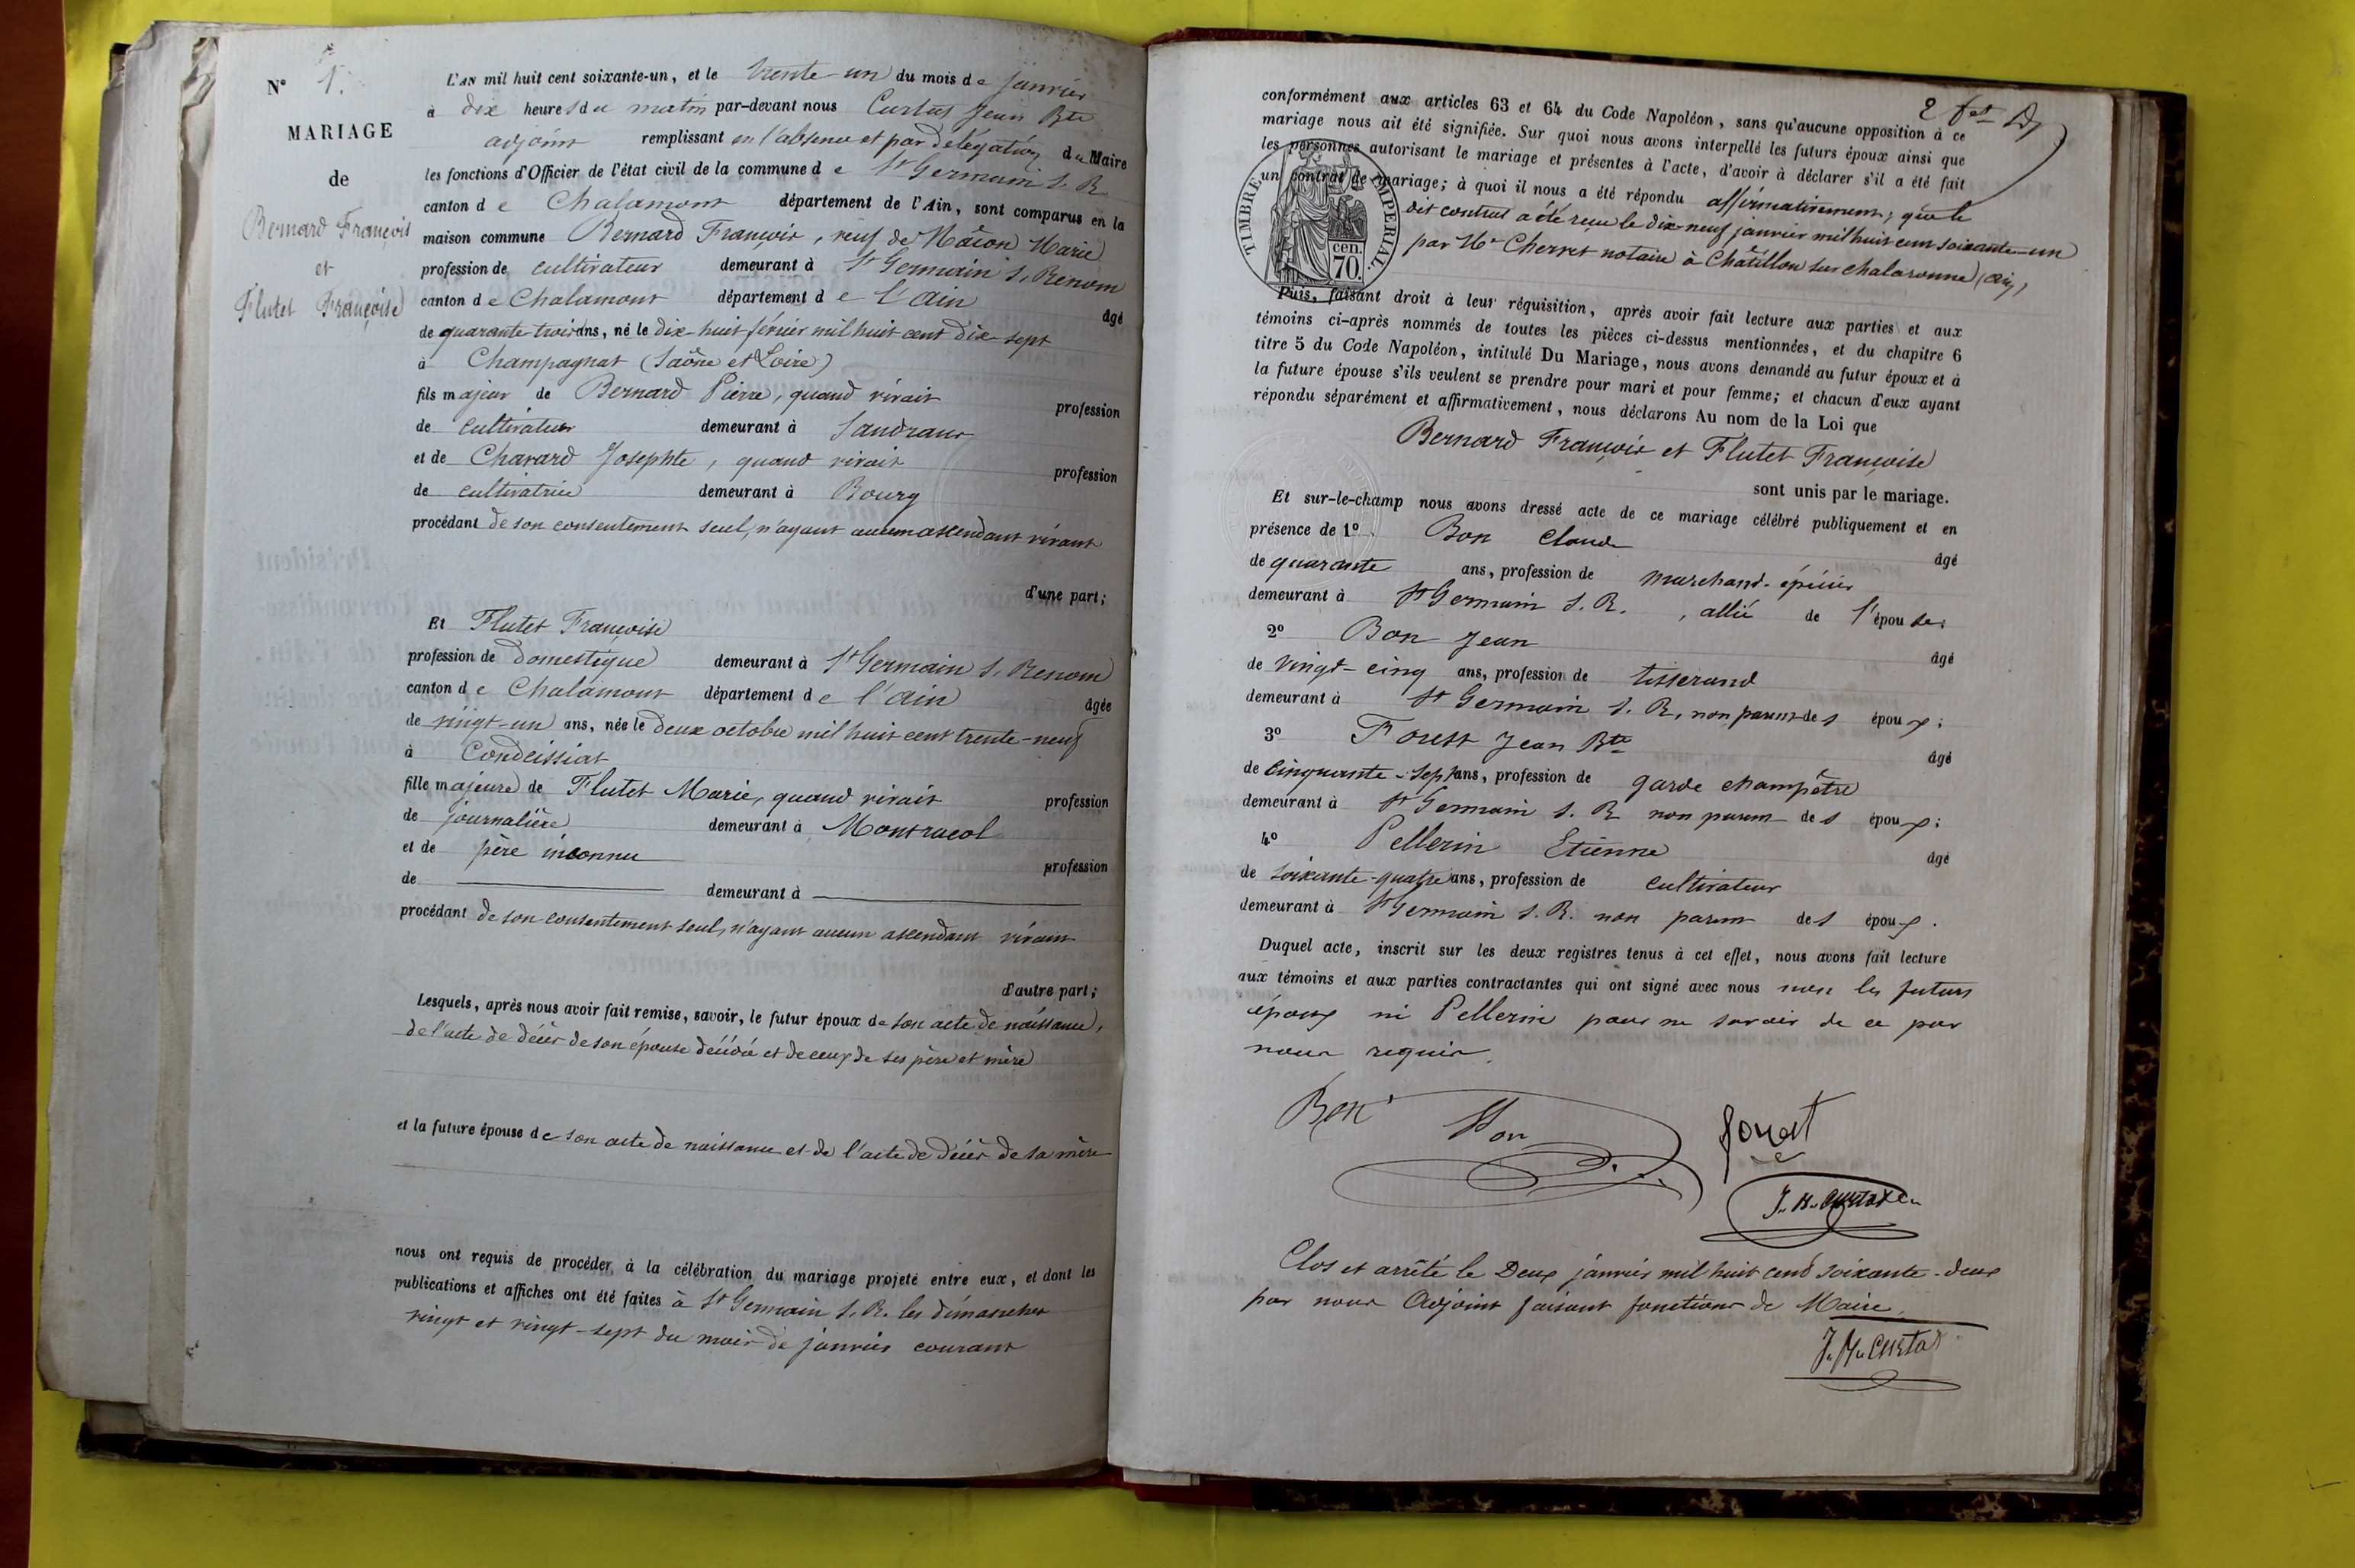 N° 1.
MARIAGE
de
Bernard François
et
Flutet Françoise
L'AN mil huit cent soixante-un, et le trente-un du mois de janvier
à dix heures du matin par-devant nous Curtat Jean Bte
adjoint remplissant en l'absence et par délégation du Maire
les fonctions d'Officier de l'état civil de la commune de St Germain S. R.
canton de Chalamont département de l'Ain, sont comparus en la
maison commune Bernard François, veuf de Mâcon Marie
profession de cultivateur demeurant à St Germain S. Renom
canton de Chalamont département de l'Ain âgé
de quarante trois ans, né le dix-huit février mil huit cent dix-sept
à Champagnat (Saône et Loire)
fils majeur de Bernard Pierre, quand vivait profession
de cultivateur demeurant à Sandrans
et de Chavard Josephte, quand vivait profession
de cultivatrice demeurant à Bourg
procédant de son consentement seul, n'ayant aucun ascendant vivant
d'une part;
Et Flutet Françoise
profession de domestique demeurant à St Germain S. Renom
canton de Chalamont département de l'Ain âgée
de vingt-un ans, née le deux octobre mil huit cent trente-neuf
à Condeissiat
fille majeure de Flutet Marie, quand vivait profession
de journalière demeurant à Montracol
et de père inconnu profession
de demeurant à
procédant de son consentement seul, n'ayant aucun ascendant vivant
d'autre part;
Lesquels, après nous avoir fait remise, savoir, le futur époux de son acte de naissance,
de l'acte de décès de son épouse décédée et de ceux de ses père et mère
et la future épouse de son acte de naissance et de l'acte de décès de sa mère
nous ont requis de procéder à la célébration du mariage projeté entre eux, et dont les
publications et affiches ont été faites à St Germain S. R. les dimanches
vingt et vingt-sept du mois de janvier courant
conformément aux articles 63 et 64 du Code Napoléon, sans qu'aucune opposition à ce
mariage nous ait été signifiée. Sur quoi nous avons interpellé les futurs époux ainsi que
les personnes autorisant le mariage et présentes à l'acte, d'avoir à déclarer s'il a été fait
un contrat de mariage; à quoi il nous a été répondu affirmativement, que le
dit contrat a été reçu le dix-neuf janvier mil huit cent soixante-un
par Me Cherret notaire à Châtillon sur chalaronne (Ain)
TIMBRE IMPERIAL.
cen.
70.
Puis, faisant droit à leur réquisition, après avoir fait lecture aux parties et aux
témoins ci-après nommés de toutes les pièces ci-dessus mentionnées, et du chapitre 6
titre 5 du Code Napoléon, intitulé Du Mariage, nous avons demandé au futur époux et à
la future épouse s'ils veulent se prendre pour mari et pour femme; et chacun d'eux ayant
répondu séparément et affirmativement, nous déclarons Au nom de la Loi que
Bernard François et Flutet Françoise
sont unis par le mariage.
Et sur-le-champ nous avons dressé acte de ce mariage célébré publiquement et en
présence de 1° Bon Claude âgé
de quarante ans, profession de marchand-épicier
demeurant à St Germain S. R., allié de l'épouse;
2° Bon Jean âgé
de vingt-cinq ans, profession de tisserand
demeurant à St Germain S. R, non parent des époux;
3° Forest Jean Bte âgé
de cinquante-sept ans, profession de garde champêtre
demeurant à St Germain S. R non parent des époux;
4° Pellerin Etienne âgé
de soixante-quatre ans, profession de cultivateur
demeurant à St Germain S. R. non parent des époux.
Duquel acte, inscrit sur les deux registres tenus à cet effet, nous avons fait lecture
aux témoins et aux parties contractantes qui ont signé avec nous non les futurs
époux ni Pellerin pour ne savoir de ce par
nous requis.
Bon Bon forest
J. B. Curtat
Clos et arrêté le Deux janvier mil huit cent soixante-deux
par nous Adjoint faisant fonctions de Maire.
J. B. Curtat